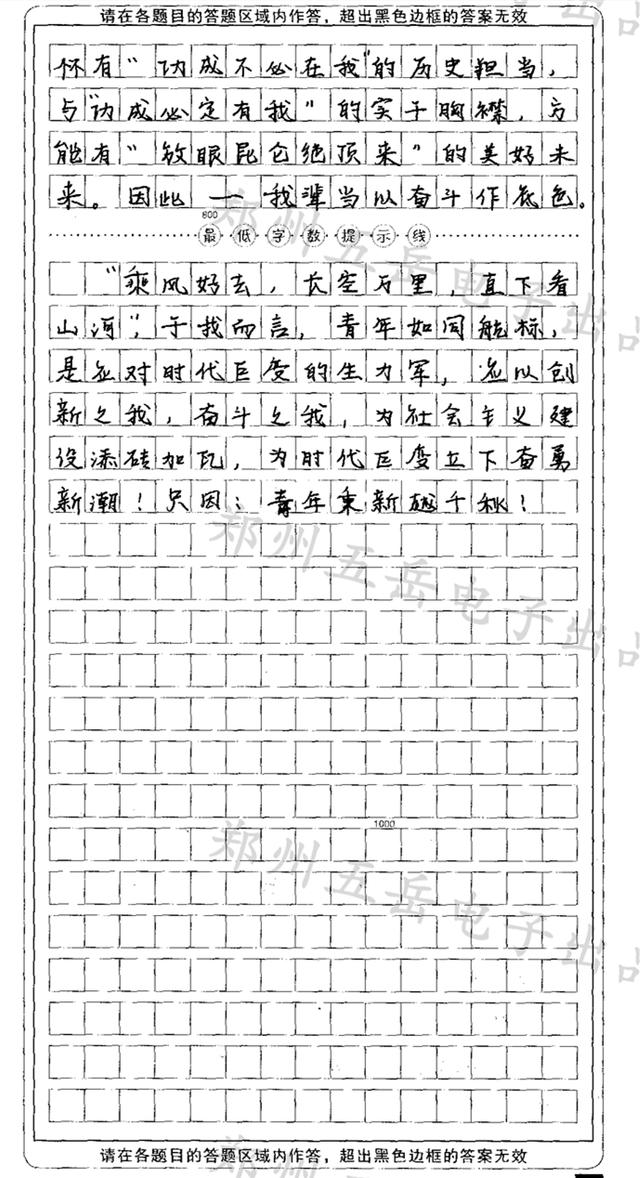 请在各题目的答题区域内作答，超出黑色边框的答案无效
怀有“功成不必在我”的历史担当，
与“功成必定有我”的实干胸襟，方
能有“放眼昆仑绝顶来”的美好未
来。因此——我辈当以奋斗作底色。
800
最低字数提示线
“乘风好去，长空万里，直下看
山河”，于我而言，青年如同航标，
是应对时代巨变的生力军，应以创
新之我，奋斗之我，为社会主义建
设添砖加瓦，为时代巨变立下奋勇
新潮！只因：青年乘新越千秋！
1000
请在各题目的答题区域内作答，超出黑色边框的答案无效
郑州五岳电子出品
郑州五岳电子出品
郑州五岳电子出品